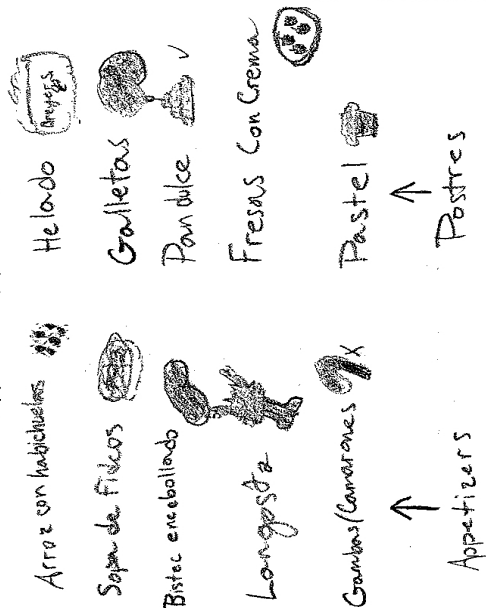 Arroz con habichuelas
Sopa de Fideos
Bistec encebollado
Langosta
Gambas/Camarones
Appetizers
Helado
Galletas
Pan dulce
Fresas Con Crema
Pastel
Postres